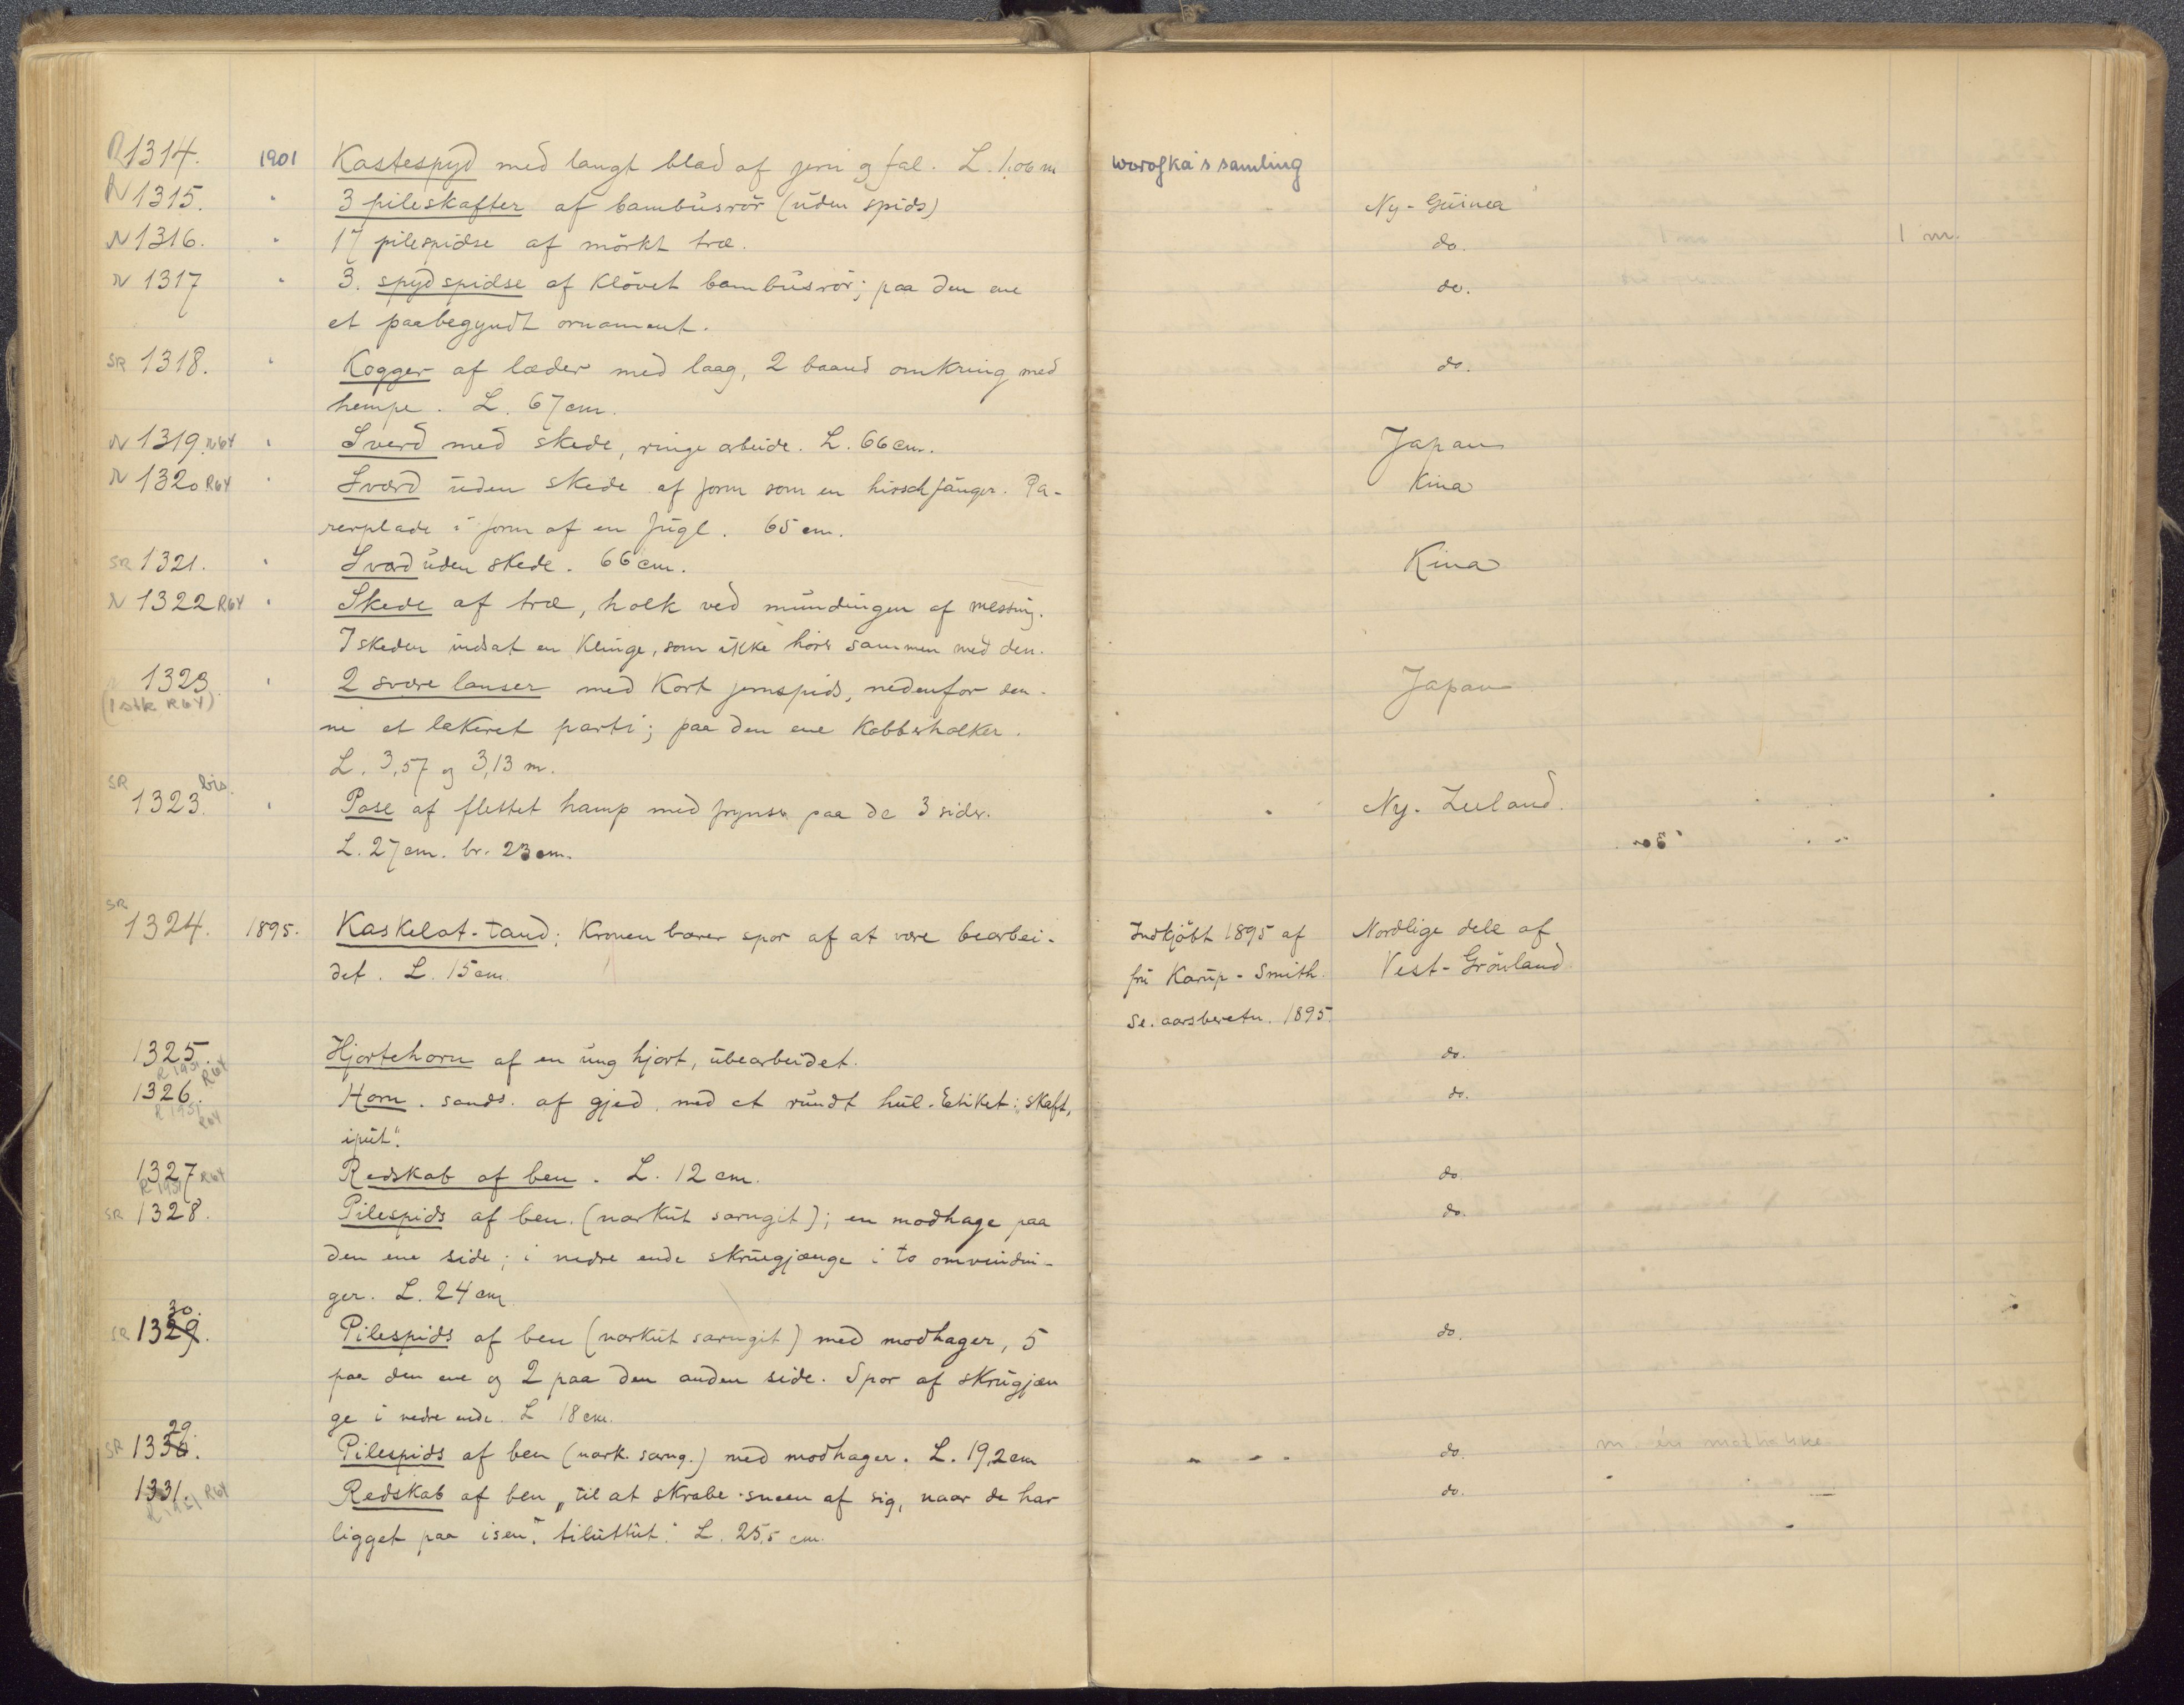 R 1314. 1901 Kastespyd med langt blad af jern og fal. L. 1,06 m worofka's samling
N 1315. " 3 pileskafter af bambusrör (uden spids) " Ny-Guinea
N 1316. " 17 pilespidse af mörkt træ. do. 1 m.
N 1317 " 3. spydspidse af klövet bambusrör; paa den ene do.
et paabegyndt ornament.
SR 1318. " Kogger af læder med laag, 2 baand omkring med do.
hempe. L. 67 cm.
N 1319. R64 " Sverd med skede, ringe arbeide. L. 66 cm. Japan
N 1320 R64 " Sværd uden skede af form som en hirschfänger. Pa- Kina
rerplade i form af en fugl. 65 cm.
SR 1321. " Sværd uden skede. 66 cm. Kina
N 1322 R64 " Skede af træ, holk ved mundingen af messing.
I skeden indsat en klinge, som ikke hörer sammen med den.
1323. " 2 svære lanser med kort jernspids, nedenfor den- Japan
(1 stk R64)
ne et lakeret parti; paa den ene kobberholker.
L. 3,57 og 3,13 m.
SR 1323 bis. " Pose af flettet hamp med frynser paa de 3 sider. " Ny-Zeeland.
L. 27 cm. br. 23 cm.
SR 1324. 1895. Kaskelot-tand; kronen bærer spor af at være bearbei- Indkjöbt 1895 af Nordlige dele af
det. L. 15 cm. fru Karup-Smith. Vest-Grönland
Se. aarsberetn. 1895.
1325. Hjortehorn af en ung hjort, ubearbeidet. do.
R 1951 R64
1326. Horn. sands. af gjed. med et rundt hul. Etiket: „skaft, do.
R 1951 R64
iput".
1327 R64 Redskab af ben. L. 12 cm. do.
R 1951
SR 1328. Pilespids af ben. (narkut sarngit); en modhage paa do.
den ene side; i nedre ende skruegjænge i to omvindin-
ger. L. 24 cm
30.
SR 1329. Pilespids af ben (narkut sarngit) med modhager, 5 do.
paa den ene og 2 paa den anden side. Spor af skrugjæn
ge i nedre ende. L 18 cm.
29
SR 1330. Pilespids af ben (nark. sarng.) med modhager. L. 19,2 cm " " " do.
1331. Redskab af ben „til at skrabe sneen af sig, naar de har do.
R 1951 R64
ligget paa isen". tiluttut." L. 25,5 cm.